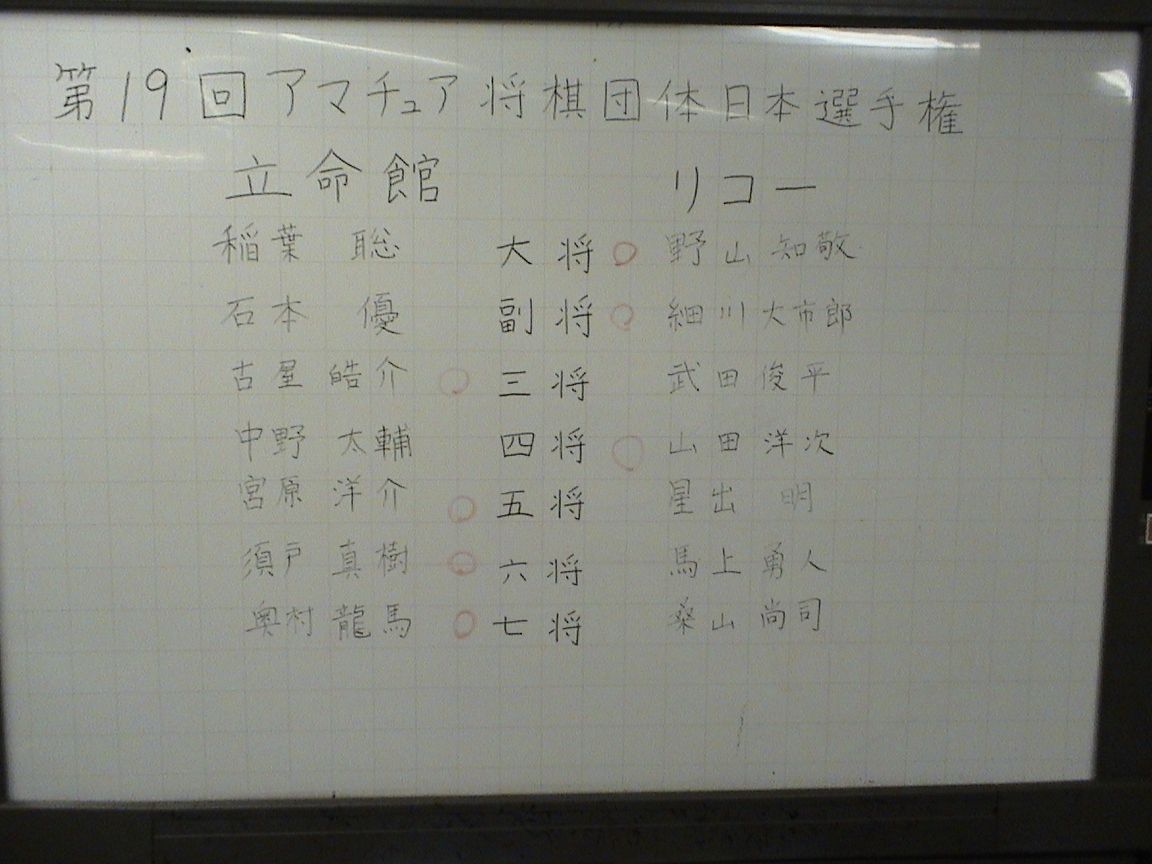 第19回アマチュア将棋団体日本選手権
立命館 リコー
稲葉 聡 大将 ○ 野山知敬
石本 優 副将 ○ 細川大市郎
古屋皓介 ○ 三将 武田俊平
中野 太輔 四将 ○ 山田洋次
宮原 洋介 ○ 五将 星出 明
須戸 真樹 ○ 六将 馬上勇人
奥村 龍馬 ○ 七将 桑山尚司